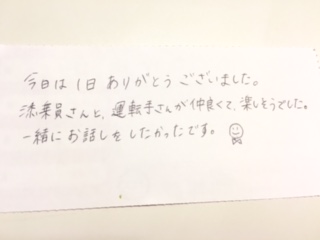 今日は1日ありがとうございました。
添乗員さんと、運転手さんが仲良くて、楽しそうでした。
一緒にお話しをしたかったです。